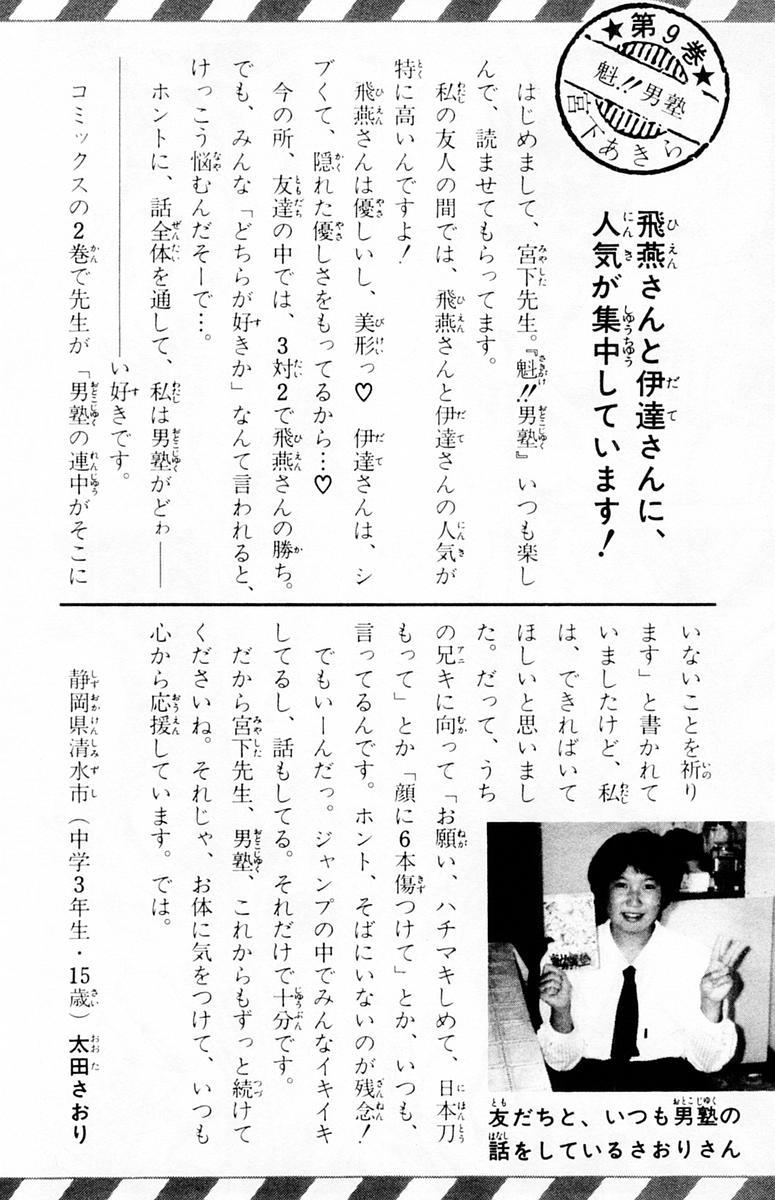 ★第9巻★
魁!!男塾
宮下あきら
飛燕さんと伊達さんに、
人気が集中しています！
はじめまして、宮下先生。『魁!!男塾』いつも楽し
んで、読ませてもらってます。
私の友人の間では、飛燕さんと伊達さんの人気が
特に高いんですよ！
飛燕さんは優しいし、美形っ♡　伊達さんは、シ
ブくて、隠れた優しさをもってるから…♡
今の所、友達の中では、3対2で飛燕さんの勝ち。
でも、みんな「どちらが好きか」なんて言われると、
けっこう悩むんだそーで…。
ホントに、話全体を通して、私は男塾がどゎ――
――――――――い好きです。
コミックスの2巻で先生が「男塾の連中がそこに
いないことを祈り
ます」と書かれて
いましたけど、私
は、できればいて
ほしいと思いまし
た。だって、うち
の兄キに向って「お願い、ハチマキしめて、日本刀
もって」とか「顔に6本傷つけて」とか、いつも、
言ってるんです。ホント、そばにいないのが残念！
でもいーんだっ。ジャンプの中でみんなイキイキ
してるし、話もしてる。それだけで十分です。
だから宮下先生、男塾、これからもずっと続けて
くださいね。それじゃ、お体に気をつけて、いつも
心から応援しています。では。
静岡県清水市（中学3年生・15歳）太田さおり
友だちと、いつも男塾の
話をしているさおりさん